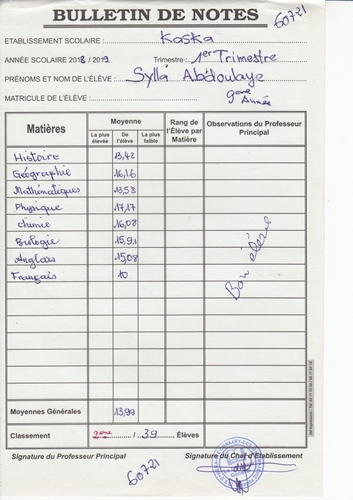 BULLETIN DE NOTES
60721
ETABLISSEMENT SCOLAIRE : Kaska
ANNÉE SCOLAIRE 2018 / 2019 Trimestre : 1er Trimestre
PRÉNOMS ET NOM DE L'ÉLÈVE : Sylla Abdoulaye
MATRICULE DE L'ÉLÈVE : 9eme Année
Matières Moyenne Rang de l'Élève par Matière Observations du Professeur Principal
La plus élevée De l'élève La plus faible
Histoire 13,42
Géographie 16,16
Mathématiques 13,58
Physique 17,17
chimie 16,08
Biologie 15,91
Anglais 15,08
Français 10
Bon élève
Moyennes Générales 13,99
Classement 2eme / 39 Élèves
Signature du Professeur Principal Signature du Chef d'Etablissement
60721